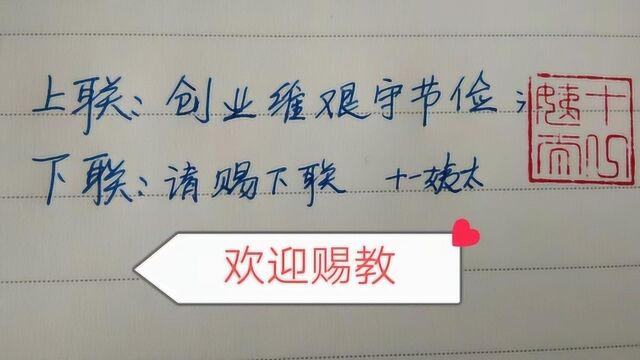 上联：创业维艰守节俭；
下联：请赐下联 十一姨太
欢迎赐教